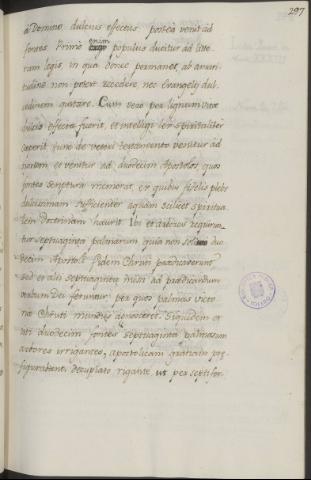 297
a Domino dulcius effectus postea venit ad
fontes Primo enim populus ducitur ad litte-
ram legis, in qua donec permanet, ab amari-
tudine non potest recedere nec Evangelij dul-
cedinem gustare. Cum vero per lignum vitæ
dulcis effecta fuerit, et intelligi lex spiritaliter
ceperit tunc de veteri testamento venitur ad
novum et venitur ad duodecim Apostolos, quos
fontes scriptura memorat, ex quibus fidelis plebs
dulcissimam sufficienter aquam scilicet spiritua
lem doctrinam haurit Ibi et arbores reperiun-
tur septuaginta palmarum quia non solum duo
decim Apostoli fidem Christi prædicaverunt
sed et alij septuaginta missi ad prædicandum
verbum Dei feruntur per quos palmas victo
riæ Christi mundus agnosceret. Siquidem et
isti duodecim fontes septuaginta palmarum
arbores irrigantes, apostolicam gratiam præ-
figurabant. Decuplato rigante ut per septifor-